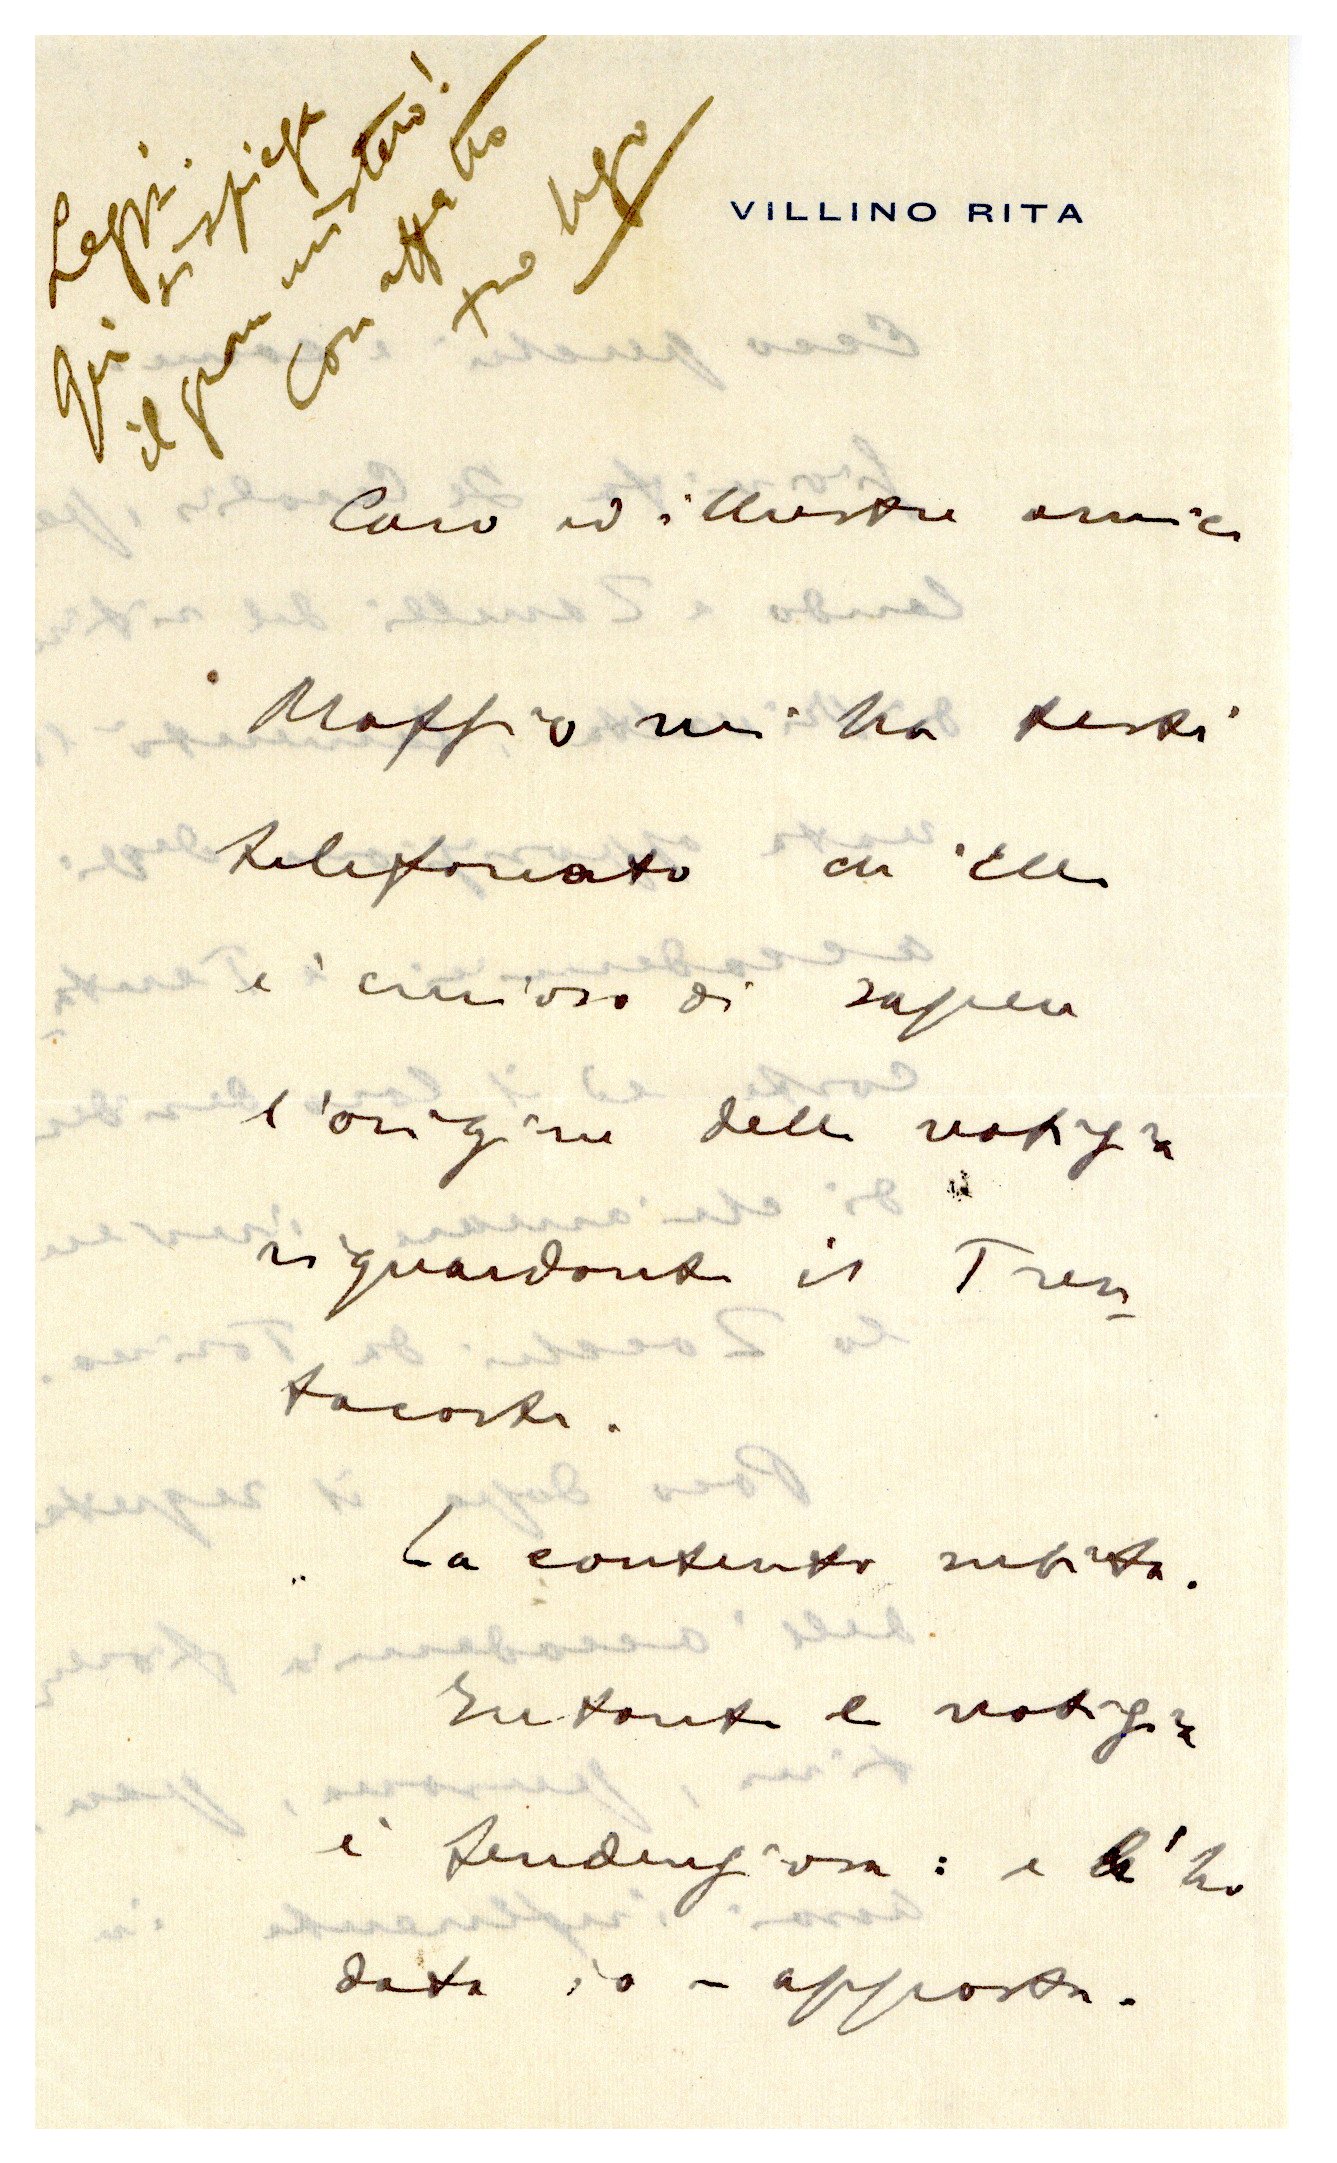 Leggi.
Qui si spiega
il gran mistero!
Con
tuo Ugo
VILLINO RITA
Caro ed illustre amico
Maffio mi ha testè
telefonato ch'Ella
è curioso di sapere
l'origine della notizia
riguardante il Tren
tacoste.
La contento subito.
Intanto la notizia
è tendenziosa: e l'ho
data io - apposta.